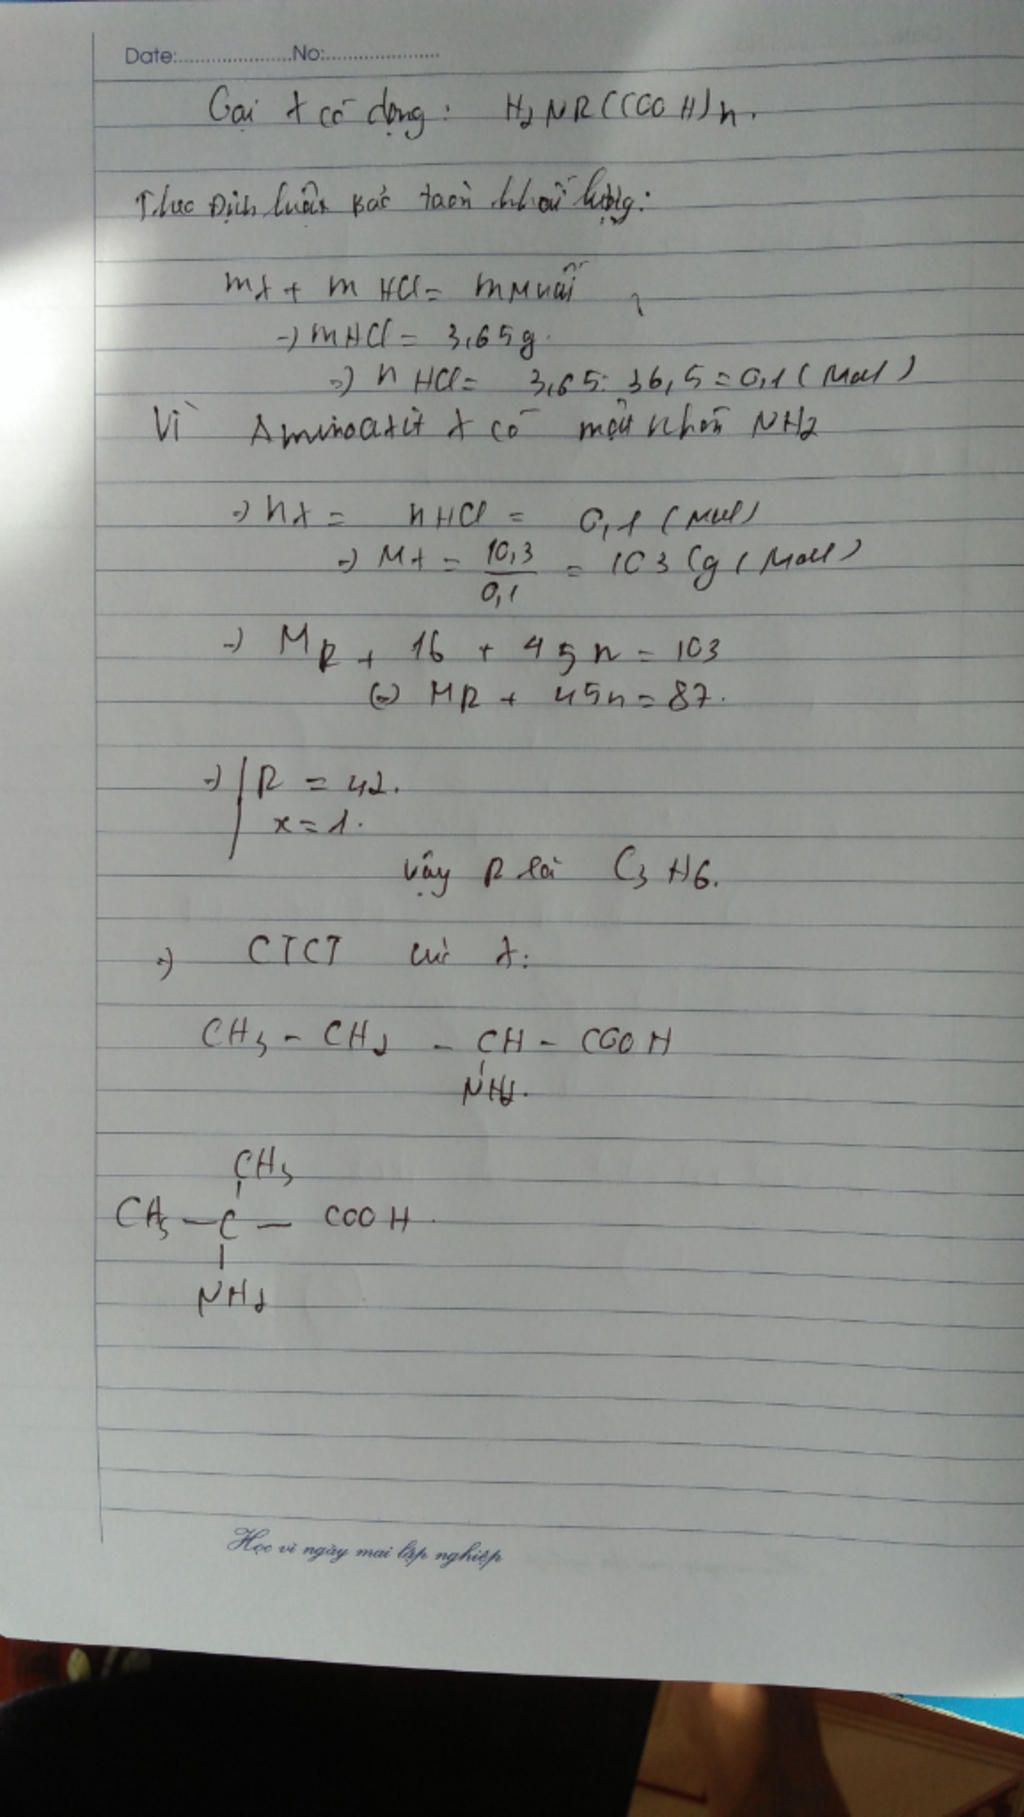 Date:......................No:......................
Gọi X có dạng: H2NR(COOH)n.
Theo Định luật bảo toàn khối lượng:
mX + m HCl = m Muối
=) mHCl = 3,65g.
=) n HCl = 3,65: 36,5 = 0,1 (Mol)
Vì Aminoaxit X có một nhóm NH2
=) nX = nHCl = 0,1 (Mol)
=) MX = 10,3 / 0,1 = 103 (g / Mol)
=) MR + 16 + 45n = 103
(=) MR + 45n = 87.
=) R = 42.
x = 1.
Vậy R là C3H6.
=) CTCT của X:
CH3 - CH2 - CH - COOH
NH2.
CH3
CH3 - C - COOH.
NH2
Học vì ngày mai lập nghiệp